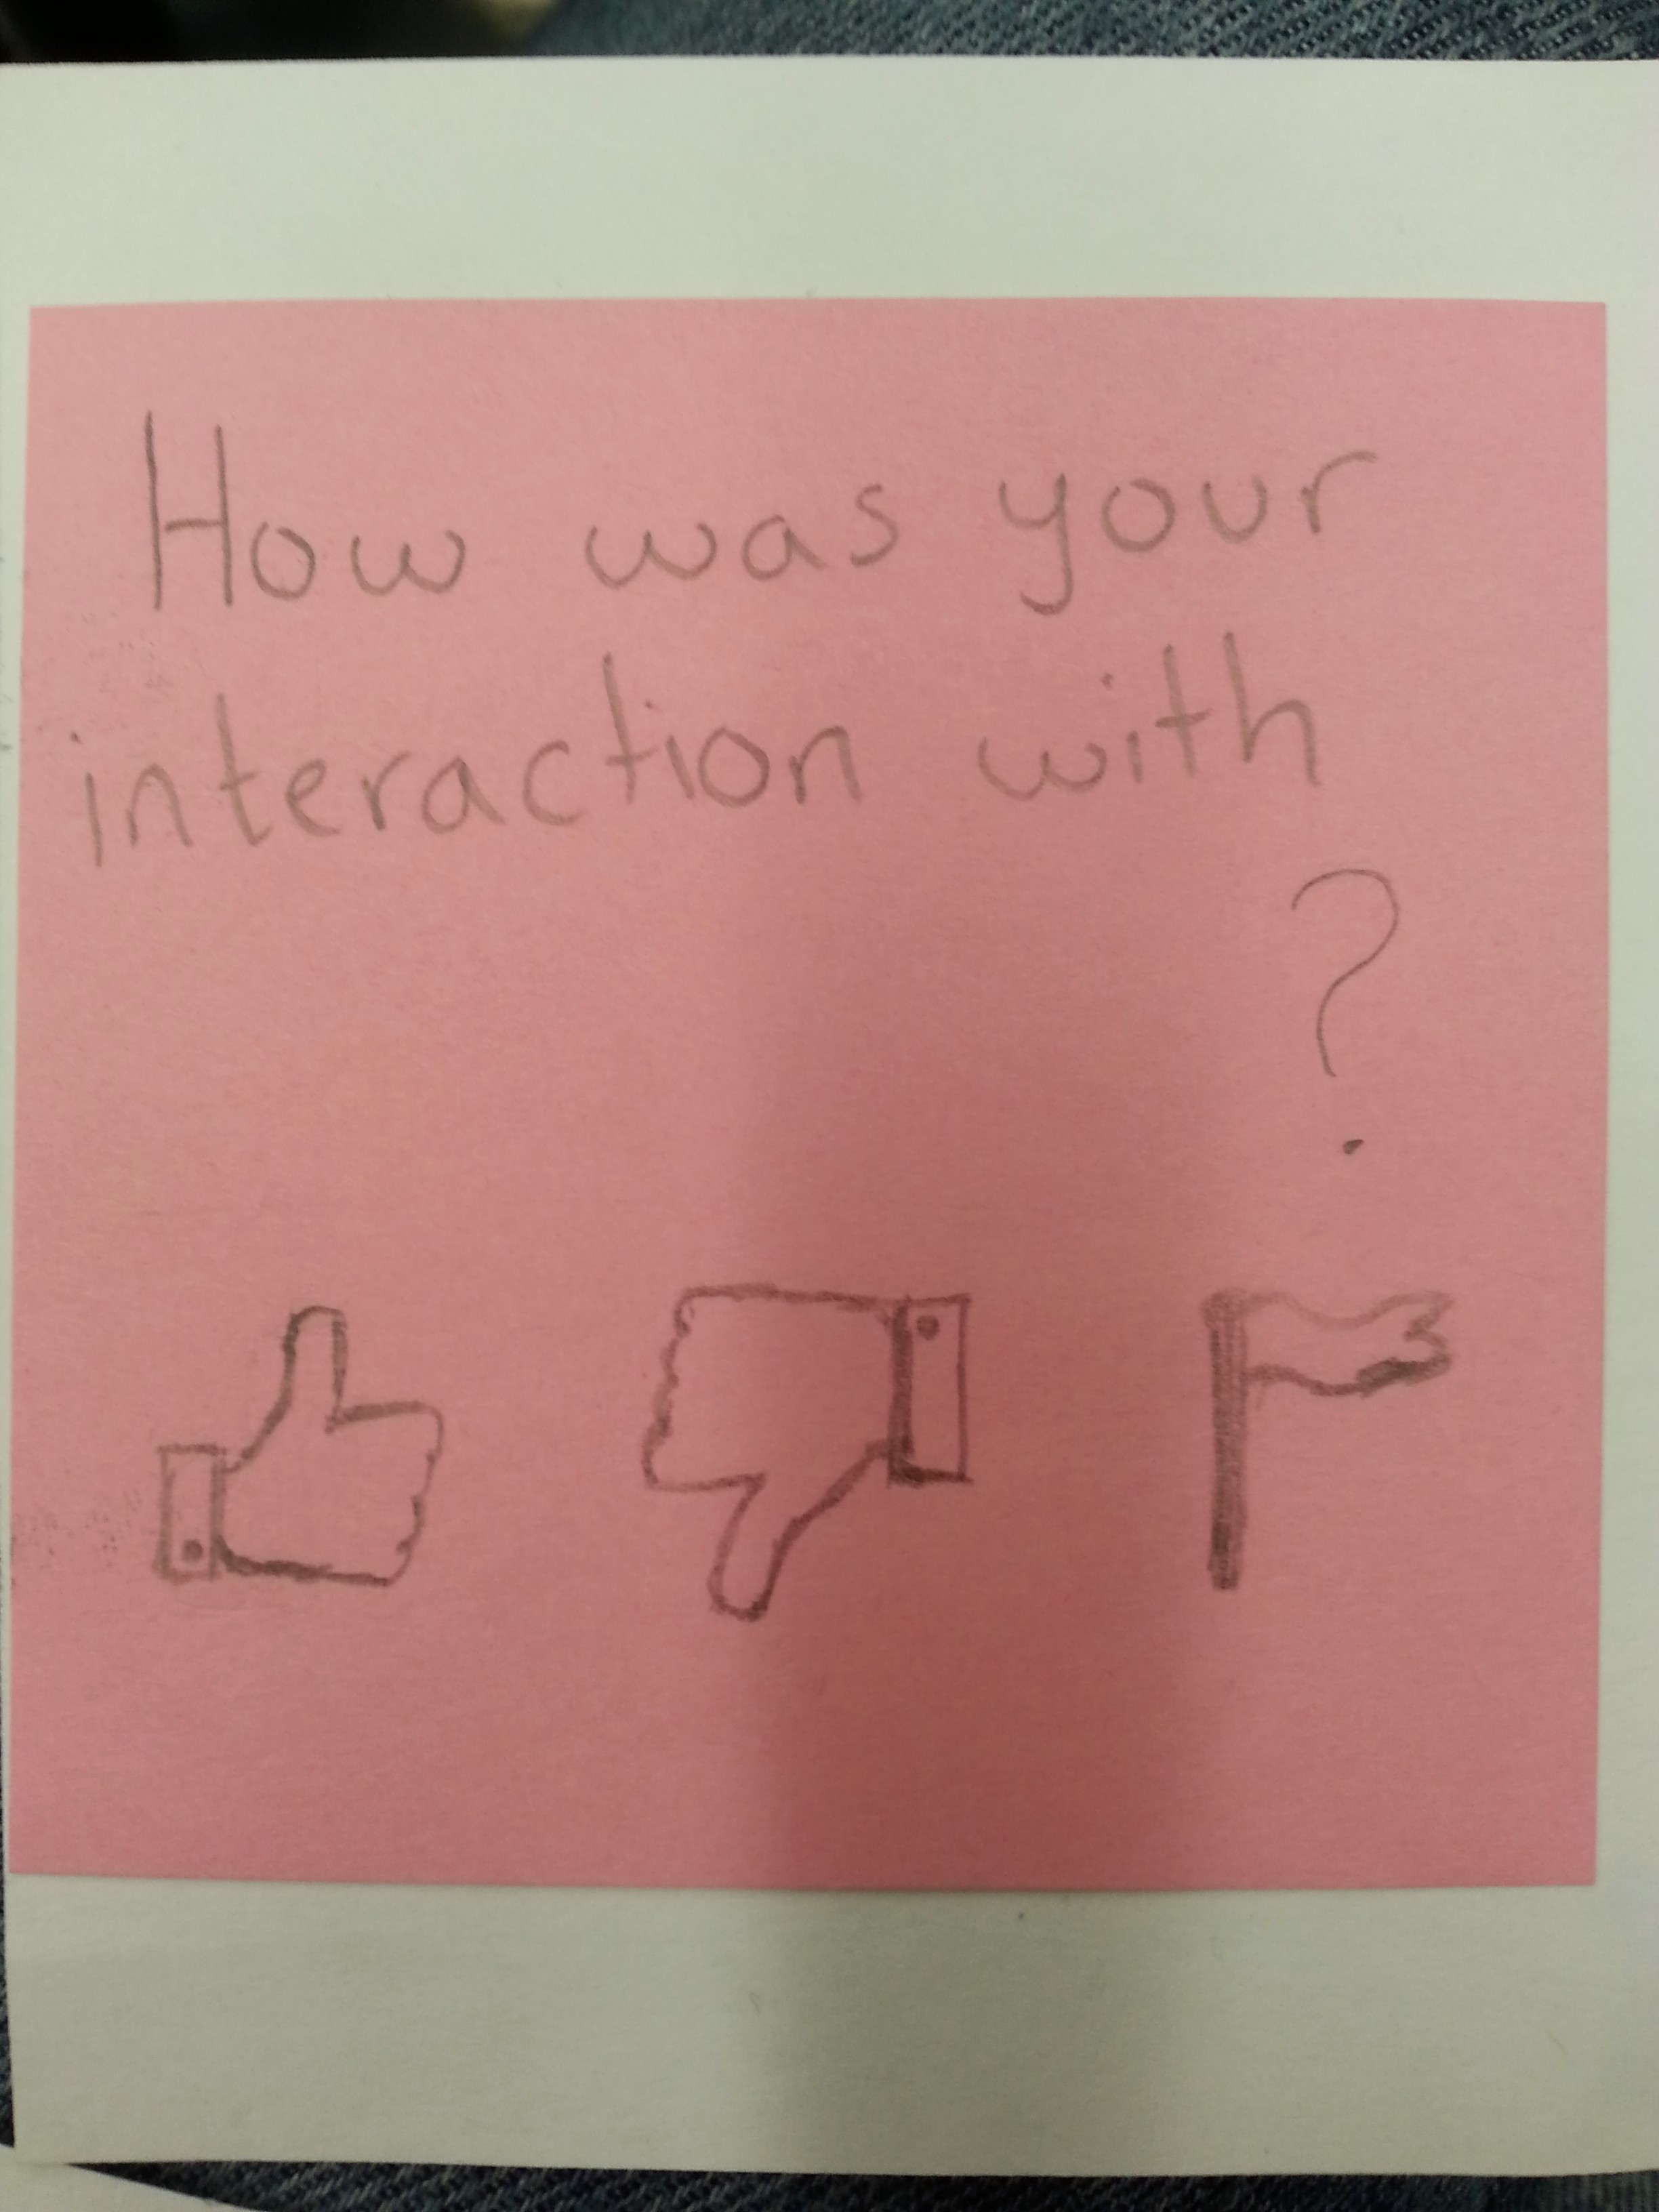 How was your
interaction with
?